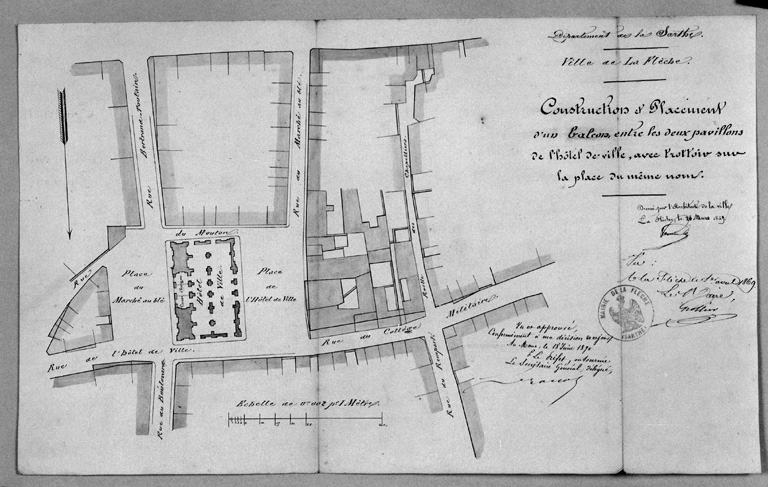 Département de la Sarthe.
Ville de La Flèche.
Construction & Placement
d'un balcon, entre les deux pavillons
de l'hôtel de ville, avec trottoir sur
la place du même nom.
Dressé par l'Architecte de la ville
La Flèche, le Mars
Vu:
A la Flèche le avril 1869
Le Maire,
MAIRIE DE LA FLÈCHE
(SARTHE)
Vu et approuvé,
Conformément à ma décision de ce jour
Au Mans, le 18 Juin 1870
P. Le Préfet, en tournée
Le Secrétaire Général, délégué,
Rue Bertrand-Poulain
Rue du Marché au blé
Ruelle des
Rue du Mouton
Place
du
Marché au blé
Hôtel
de Ville
Place
de
l'Hôtel de Ville
Rue de l'hôtel de Ville.
Rue du Collège
Militaire.
Rue du
Rue du
Echelle de 0m002 pr 1 Mètre